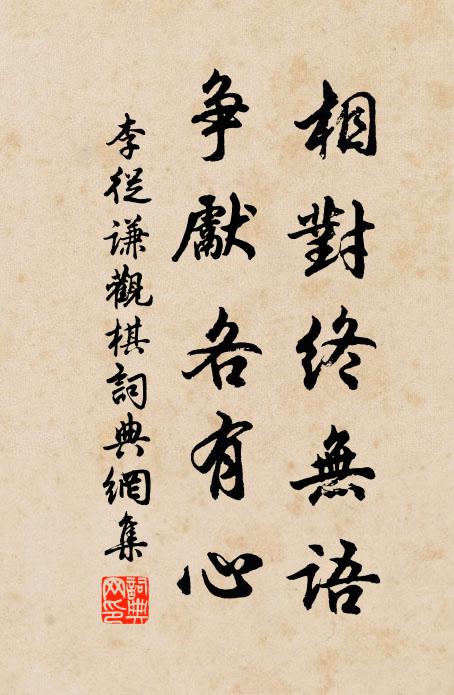 相對終無語
爭獻各有心
李從謙觀棋詞典網集
詞典網印